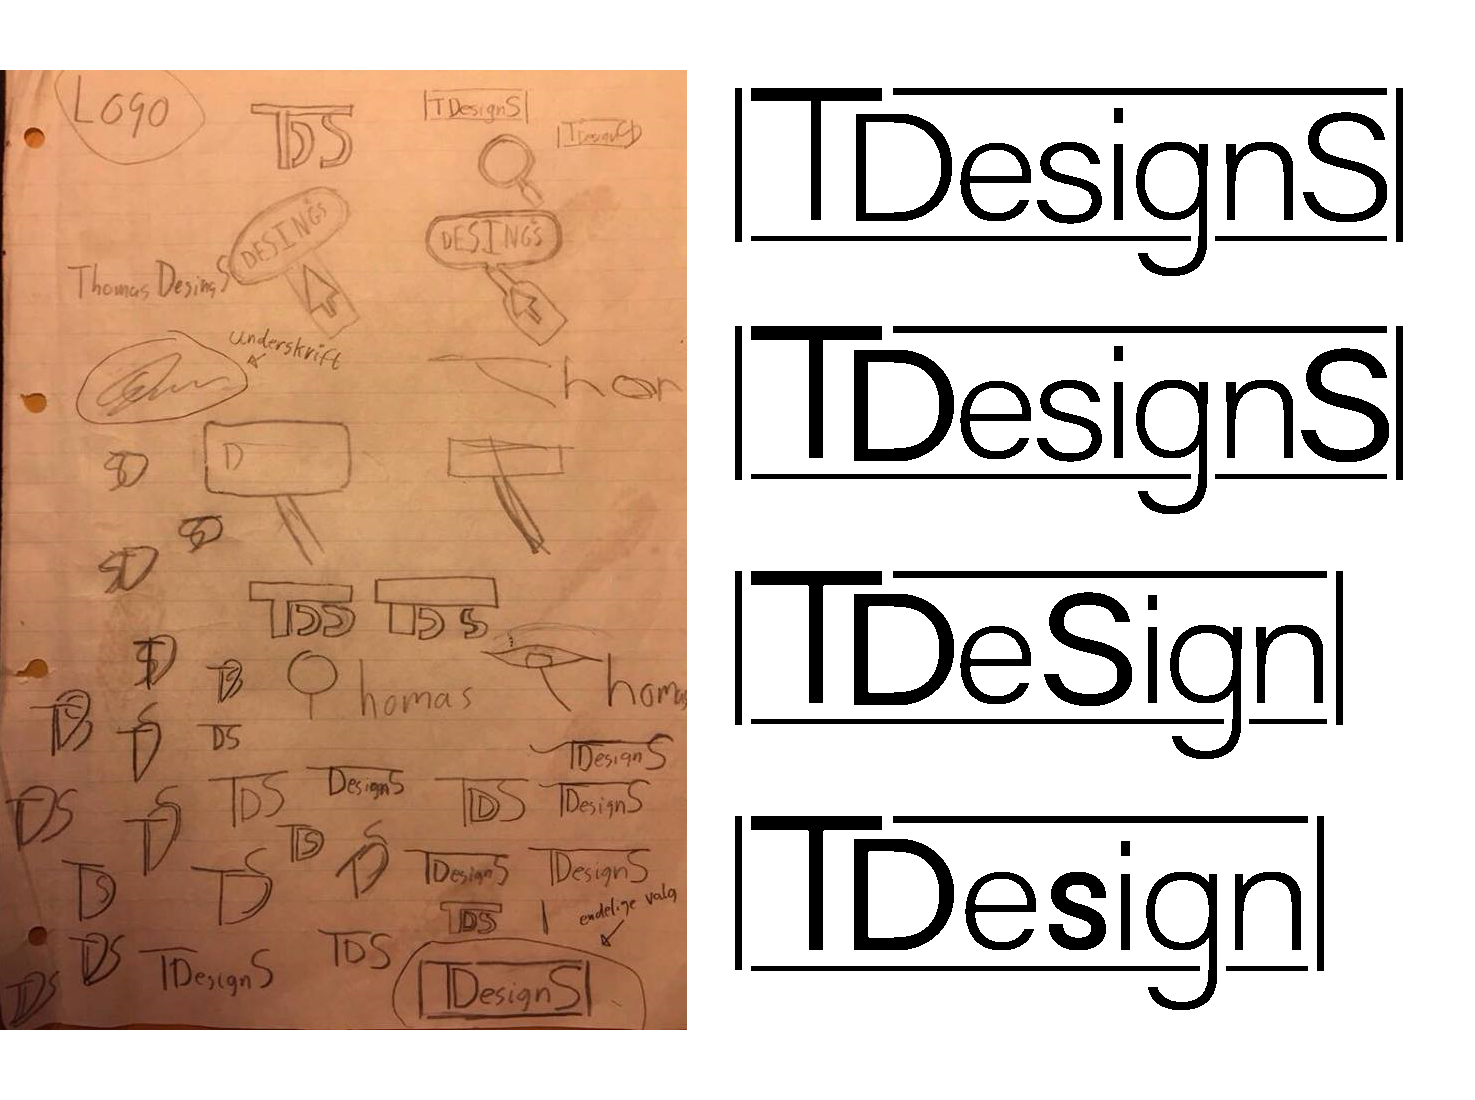 Logo
TDS
TDesignS
TDesignSD
DESINGS
DESINGS
Thomas DesingS
underskrift
hom
D
SD
SD
SD
TDS
TDS
homas
homas
TDS
DS
TDesignS
TDS
TDS
DesignS
TDS
TDesignS
TDS
TDS
TDS
TDesignS
TDesignS
TDS
TDS
endelige valg
TDS
TDS
TDesignS
TDS
TDesignS
TDS
TDesignS
TDesignS
TDeSign
TDesign